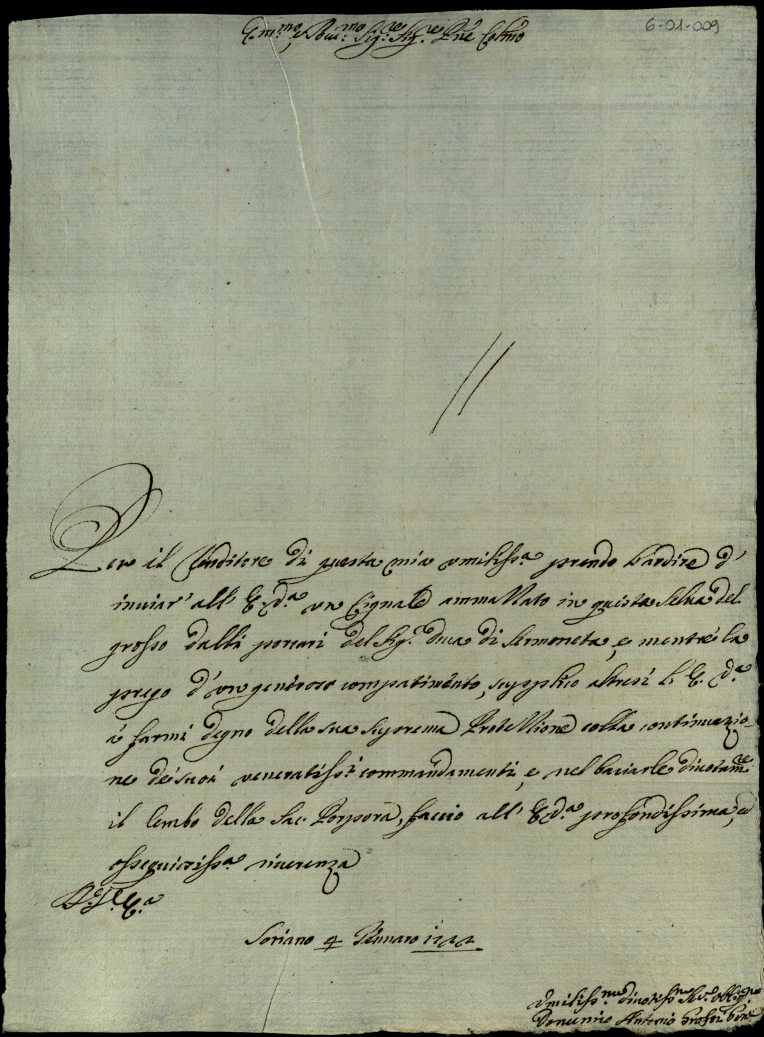 6-01-009
Em.mo, e Rev.mo Sig.re Sig.re P̃ne Col̃mo
Per il Conditore di questa mia umiliss.a prendo l'ardire d'
inviar' all' E. V.a un Cignale ammaZZato in questa Selva del
grosso dalli porcari del Sig.r Duca di Sermoneta, e mentre la
prego d'un generoso compatimento, supplico altresì l'E. V.a
à farmi degno della sua suprema Protezzione colla continuazio-
ne de' suoi veneratiss.i commandamenti, e nel baciarle divotam.te
il lembo della Sac. Porpora, faccio all' E. V.a profondissima, ed
ossequiosiss.a riverenza
Soriano 4 Gennaro 1722
Umiliss.mo divotiss.mo Ser.e obblig.mo
Antonio